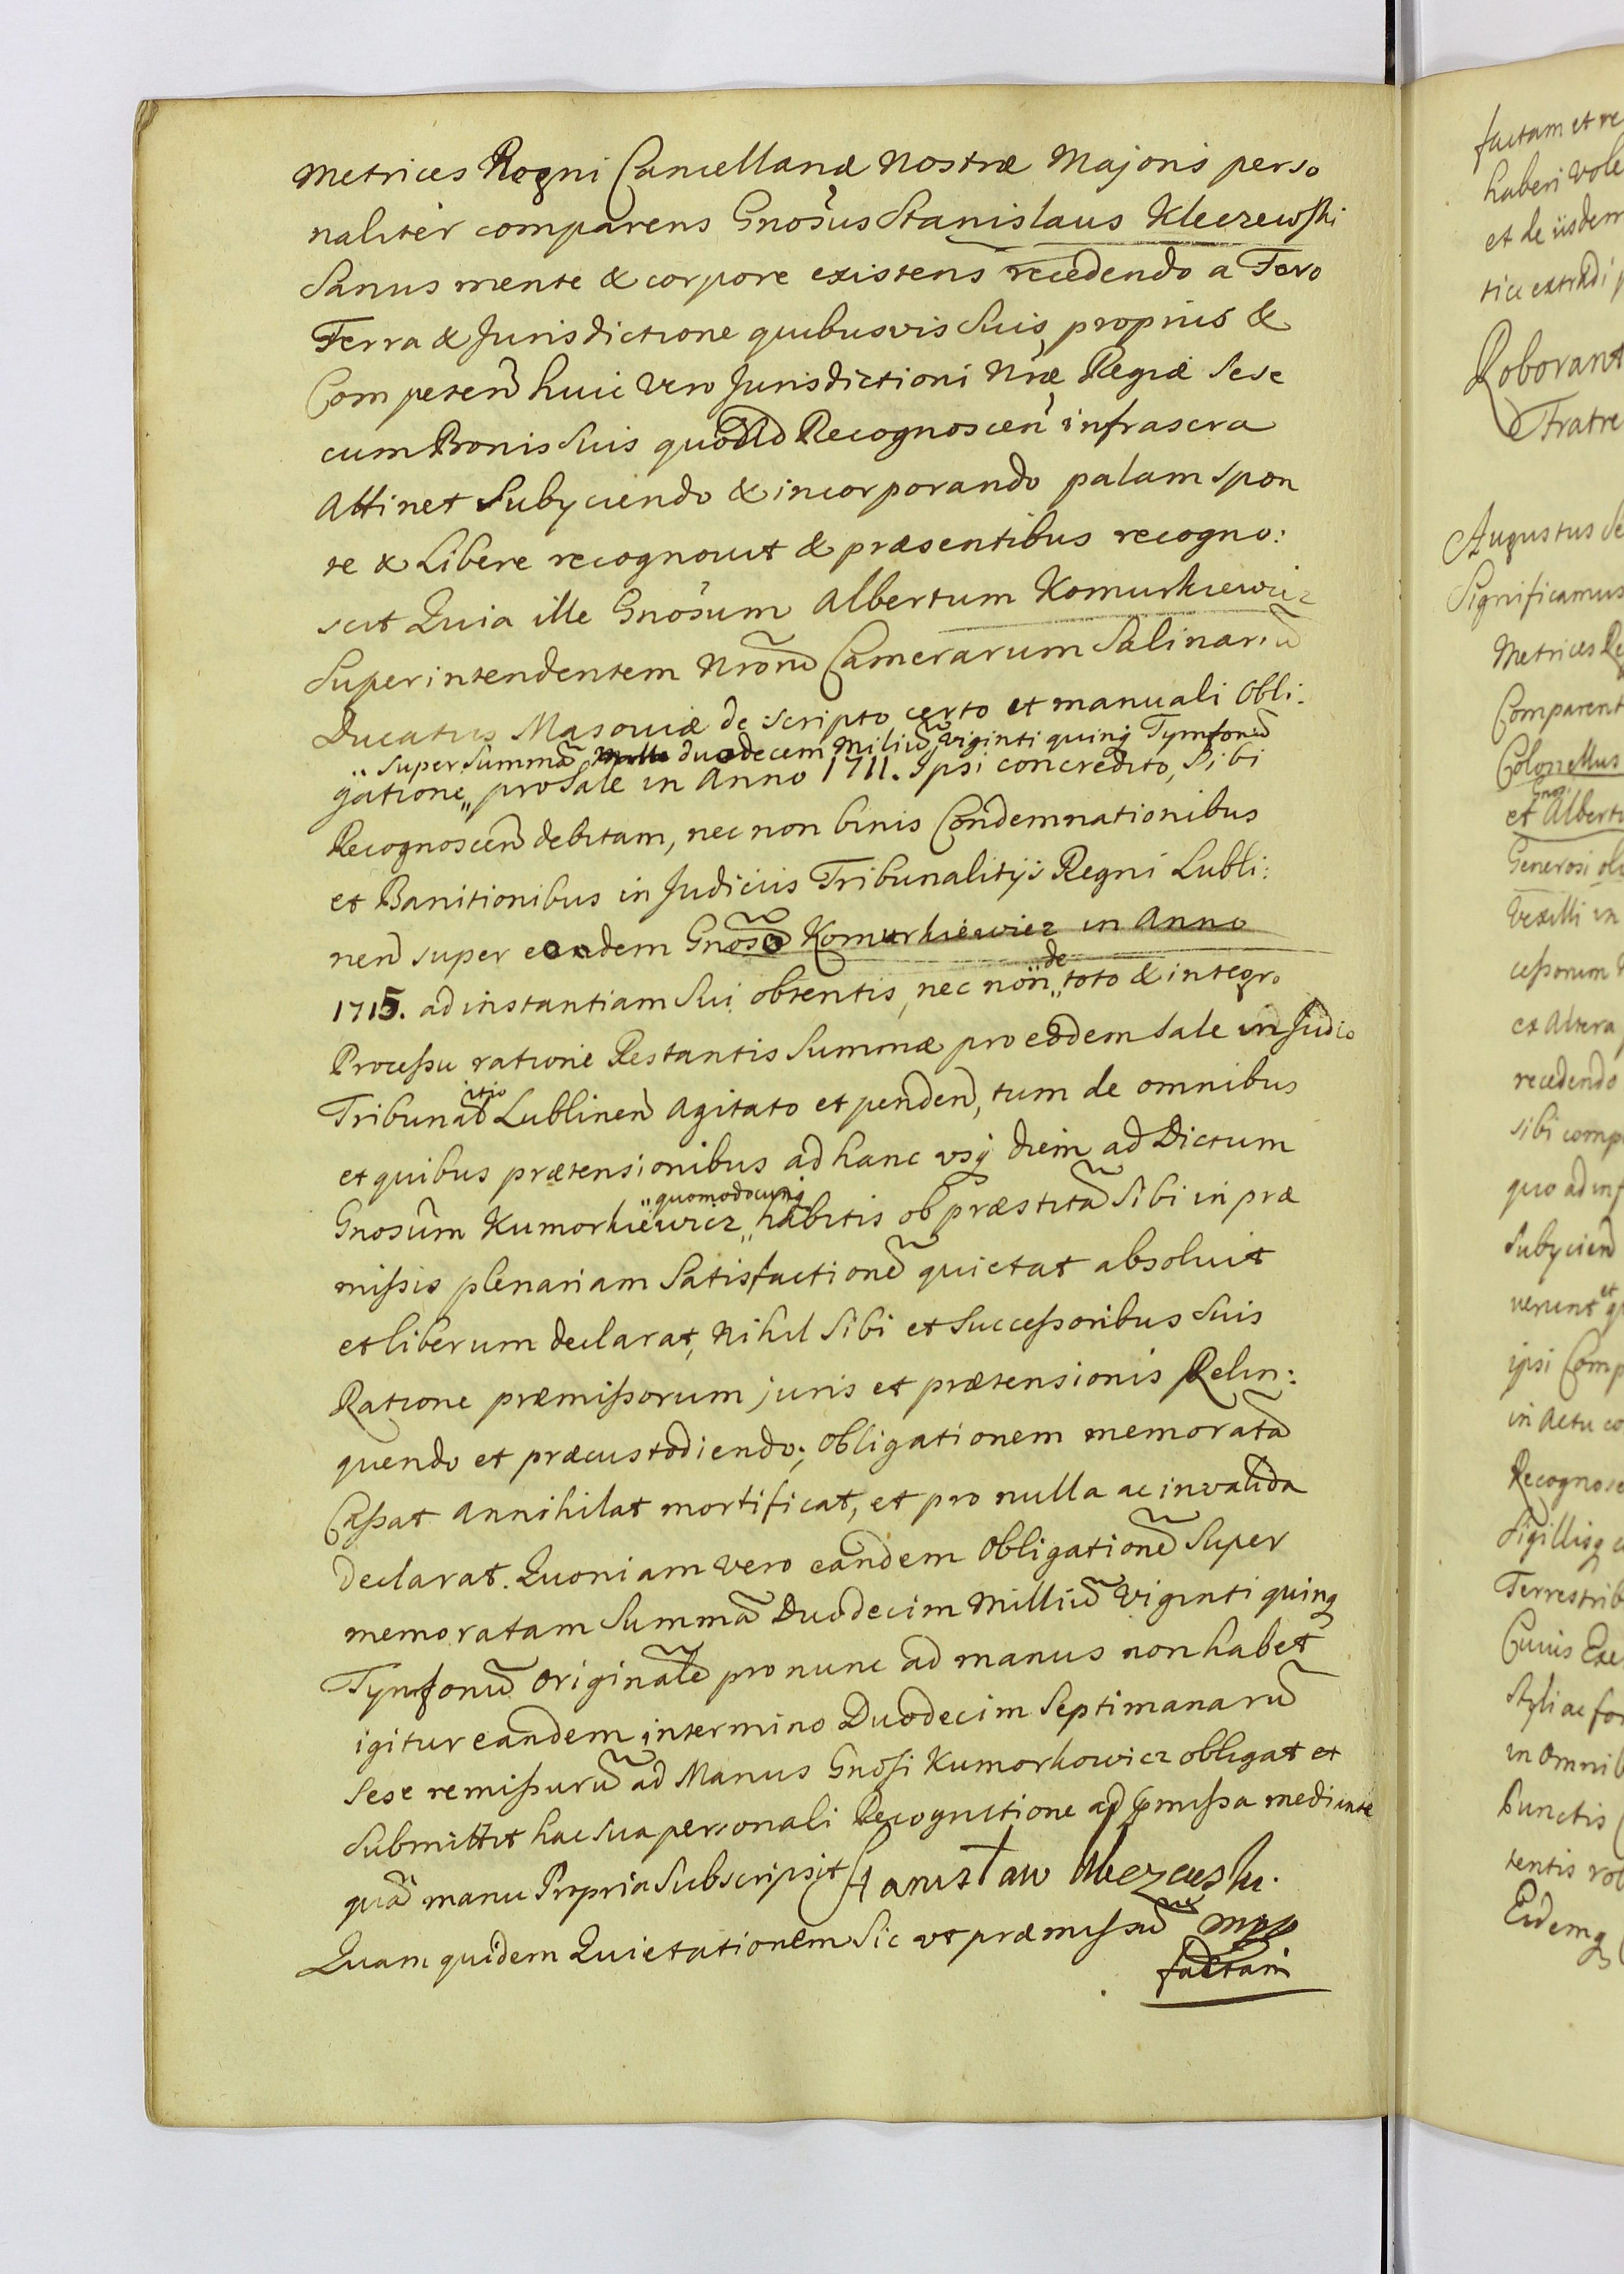 Metrices Regni Cancellariæ Nostræ Majoris perso
naliter comparens Gnosus Stanislaus Kleczewski
Sanus mente & corpore existens recedendo a Foro
Terra & Jurisdictione quibusvis Suis propriis &
Competen huic vero Jurisdictioni Nræ Regiæ Sese
cum Bonis Suis quo ad Recognoscen infrascra
Attinet Subyciendo & incorporando palam spon
te & Libere recognovit & præsentibus recogno:
scit Quia ille Gnosum Albertum Komurkiewicz
Superintendentem Nrorũ Camerarum Salinariũ
Ducatus Masoviæ de scripto certo et manuali Obli:
„super Summã duodecem Miliũ viginti quinq Tymfonũ
gatione„ pro Sale in Anno 1711. Ipsi concredito, Sibi
Recognoscen debitam, nec non binis Condemnationibus
et Banitionibus in Judiciis Tribunalitijs Regni Lubli:
nen super eodem Gnoso Komurkiewicz in Anno
de
1715. ad instantiam Sui obtentis, nec non„ toto & integro
Processu ratione Restantis Summæ pro eodem Sale in Judio
itio
Tribunal Lublinen Agitato et penden, tum de omnibus
et quibus prætensionibus ad hanc vsq diem ad Dictum
„quomodocunq
Gnosum Kumorkiewicz„ habitis ob præstitã Sibi in præ
missis plenariam Satisfactionẽ quietat absoluit
et liberum declarat, Nihil Sibi et Successoribus Suis
Ratione præmissorum juris et prætensionis Relin:
quendo et præcustodiendo; Obligationem memoratã
Cassat Annihilat mortificat, et pro nulla ac invalida
declarat. Quoniam vero eandem Obligationẽ Super
memoratam Summã Duodecim Milliũ Viginti quinq
Tynfonũ Originalẽ pro nunc ad manus non habet
igitur eandem in termino Duodecim Septimanarũ
Sese remissurũ ad Manus Gnosi Kumorkowicz obligat et
Submittit hac Sua personali Recognitione ad pmissa mediante
quã manu Propria Subscripsit Stanisław Kleczewski.
Quam quidem Quietationem Sic vt præmissũ mpp
factam
factam et re
haberi vole
et de iisdem
tice extradi
Roborant
Fratre
Augustus Se
Significamus
Metrices Re
Comparent
Colonellus
Gnos
et Albertu
Generosi oli
Vexilli in
cessorum
ex Altera
recedendo
sibi comp
quo ad inf
Subycien
et
verunt
ipsi Comp
in Actu co
Recognosc
Sigillisq
Terrestrib
Cuius Exe
Styli ac for
in Omnib
Punctis
tentis rob
Eidemq